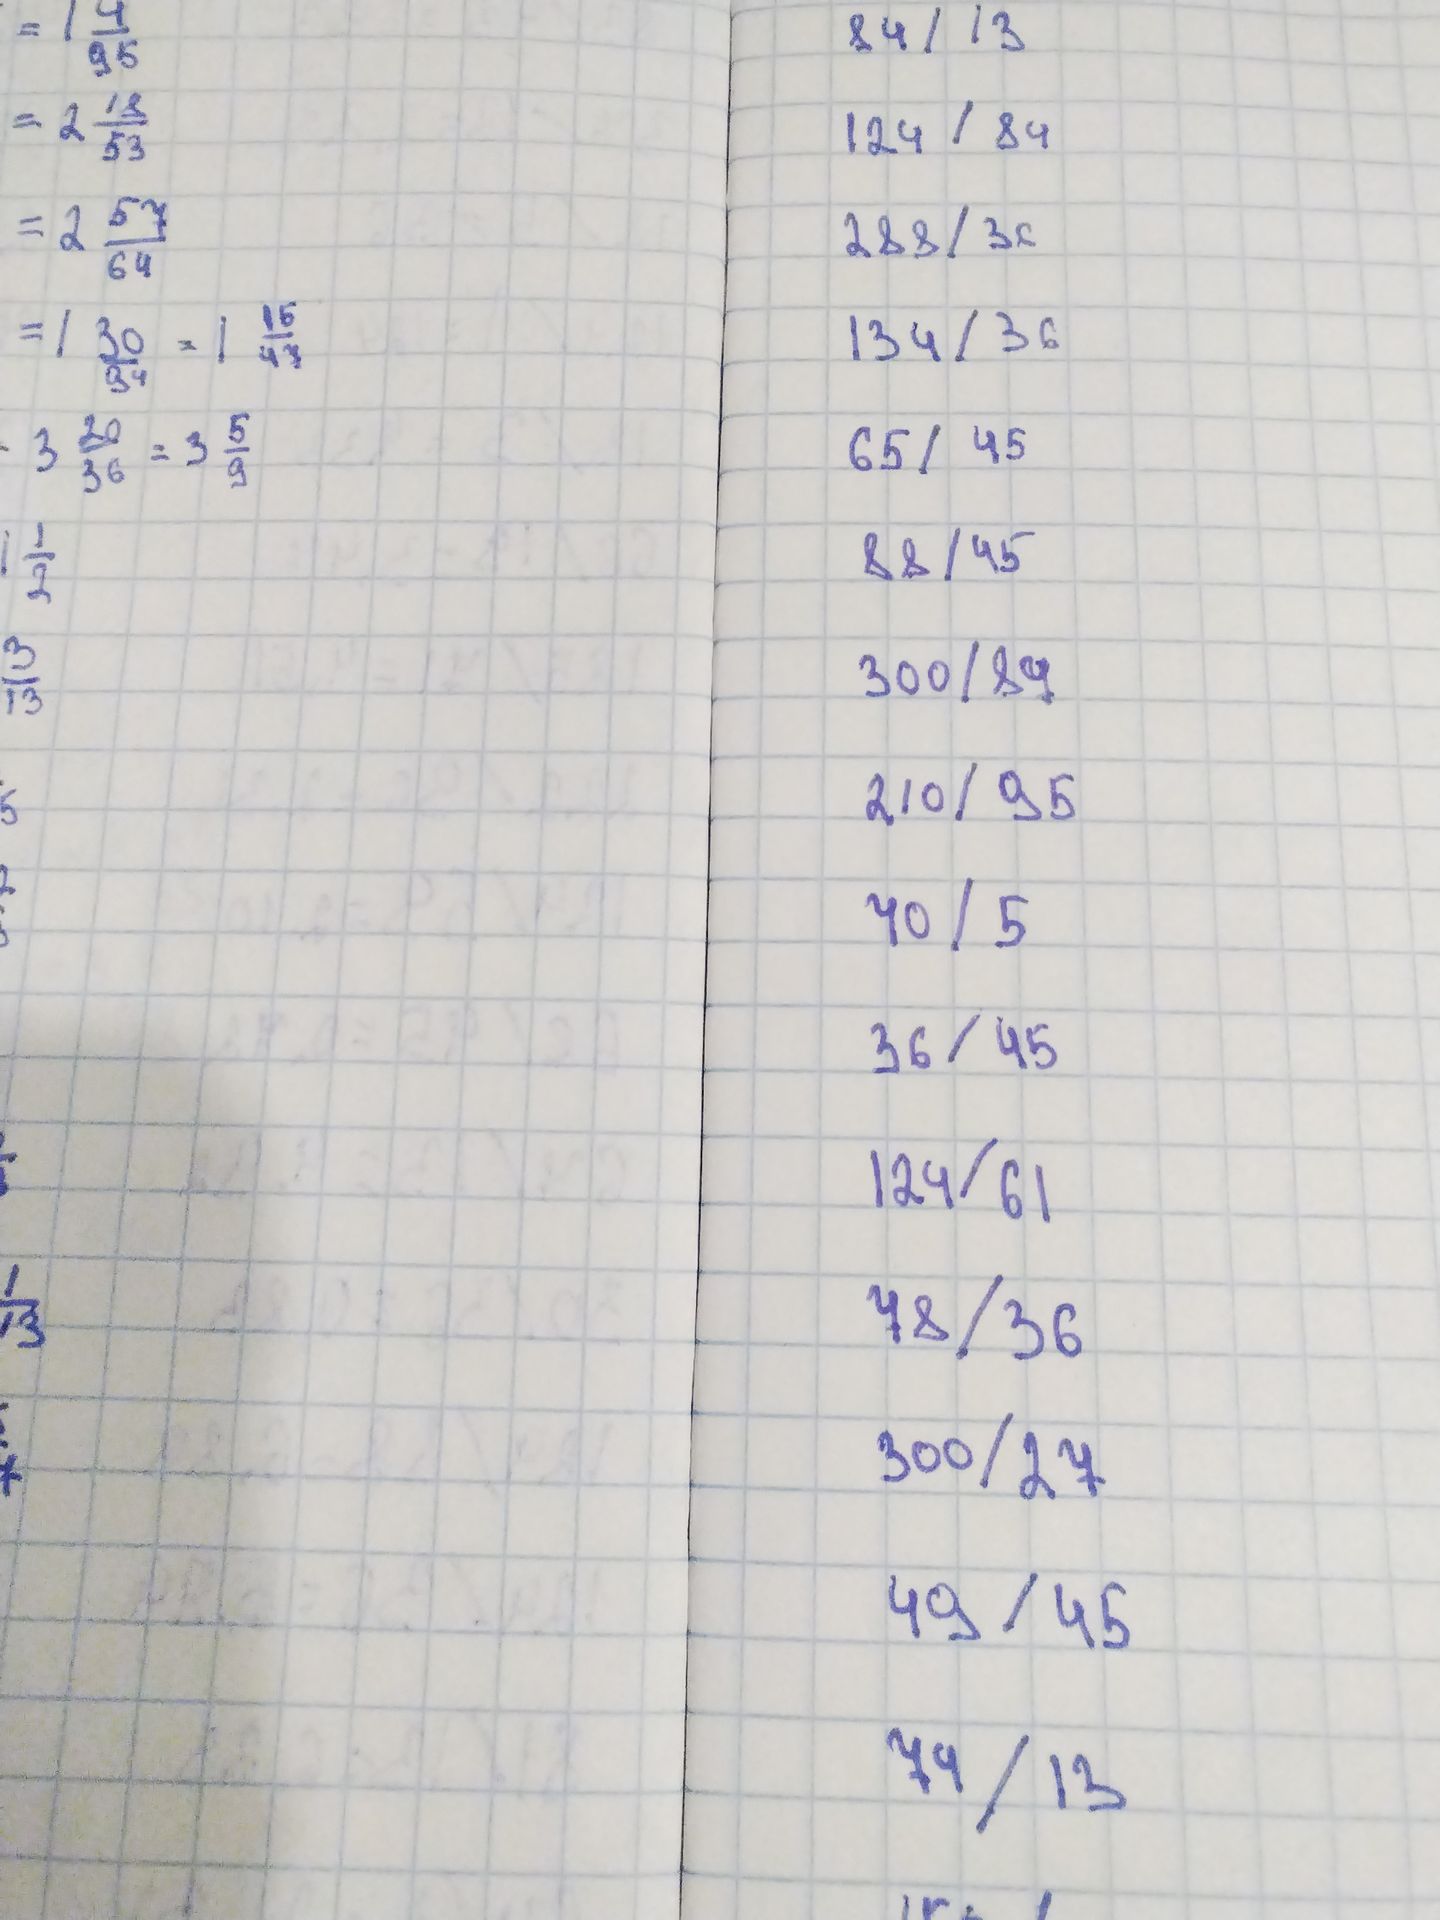 = 1 4/95
= 2 18/53
= 2 57/64
= 1 30/94 = 1 15/47
3 20/36 = 3 5/9
1 1/2
3/13
5
1/13
84 / 13
124 / 84
288 / 36
134 / 36
65 / 45
88 / 45
300 / 89
210 / 95
70 / 5
36 / 45
124 / 61
78 / 36
300 / 27
49 / 45
74 / 13